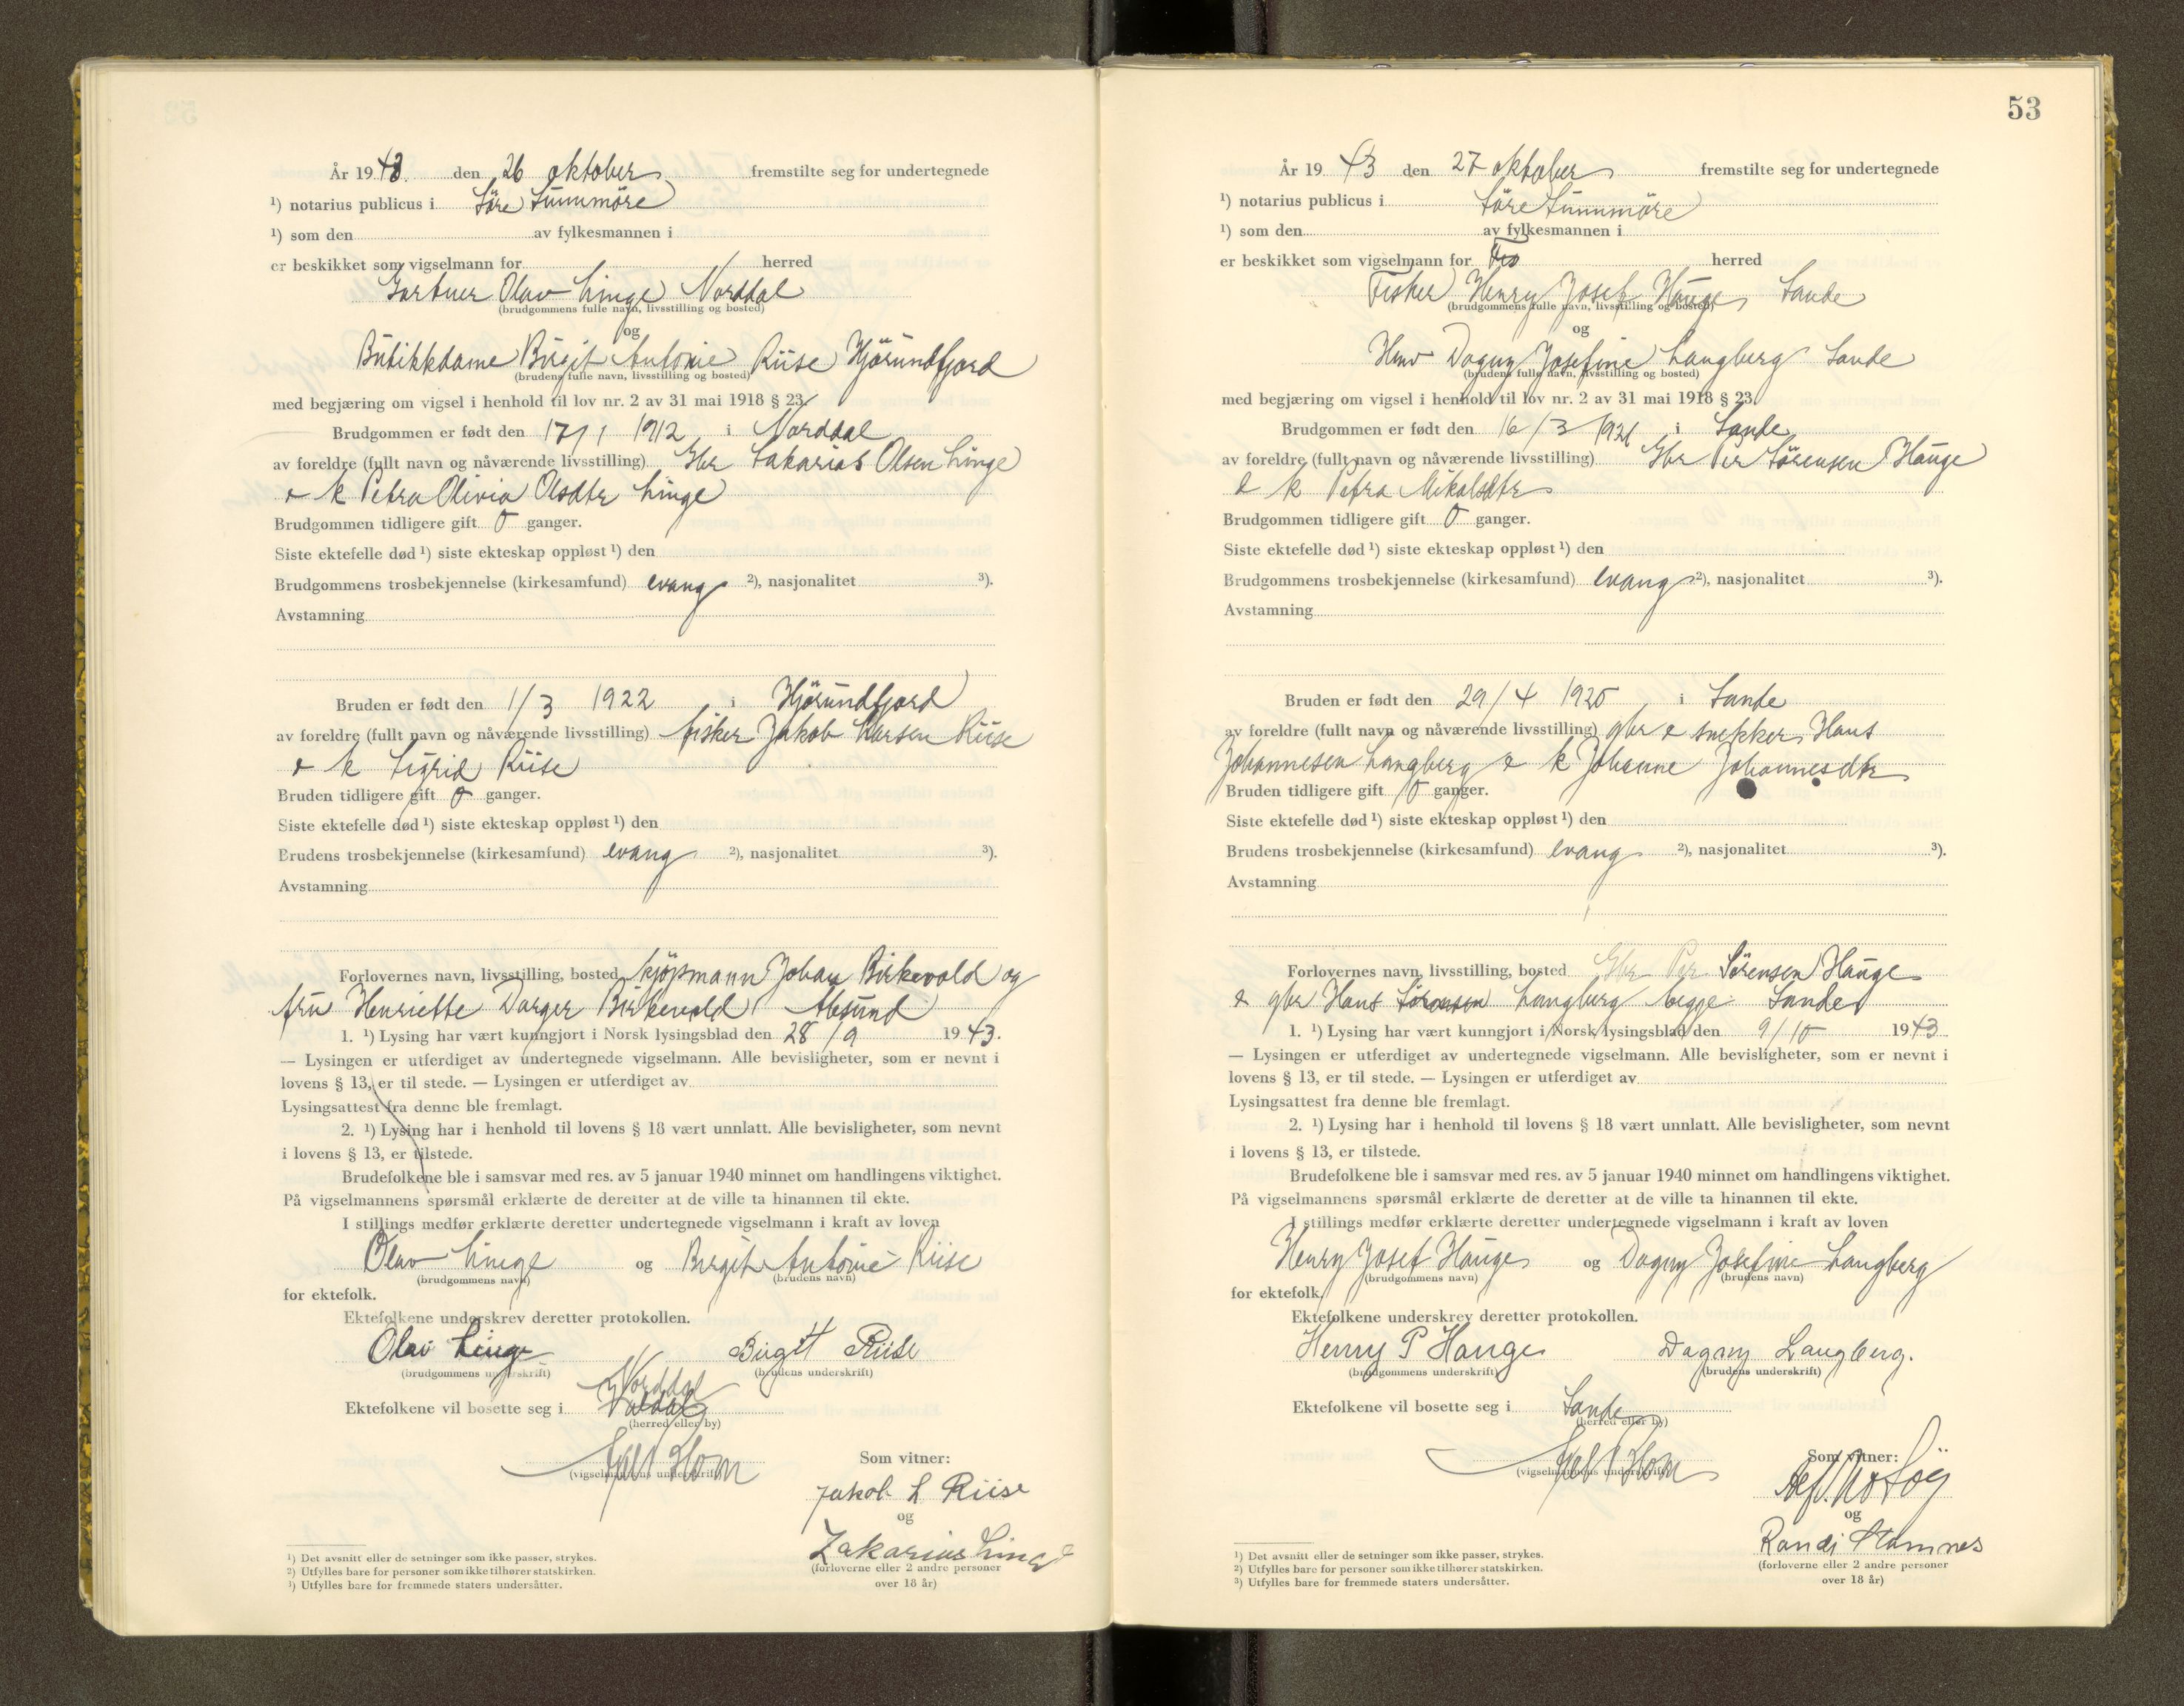 År 1943. den 26 oktober fremstilte seg for undertegnede
¹) notarius publicus i Söre Sunnmöre
¹) som den av fylkesmannen i
er beskikket som vigselmann for herred
Gartner Olav Linge Norddal
(brudgommens fulle navn, livsstilling og bosted)
og
Butikkdame Birgit Antonie Riise Hjörundfjord
(brudens fulle navn, livsstilling og bosted)
med begjæring om vigsel i henhold til lov nr. 2 av 31 mai 1918 § 23.
Brudgommen er født den 17/1 1912 i Norddal
av foreldre (fullt navn og nåværende livsstilling) Gbr Sakarias Olsen Linge
& k Petra Olivia Olsdtr Linge
Brudgommen tidligere gift 0 ganger.
Siste ektefelle død ¹) siste ekteskap oppløst ¹) den
Brudgommens trosbekjennelse (kirkesamfund) evang ²), nasjonalitet ³).
Avstamning
Bruden er født den 1/3 1922 i Hjörundfjord
av foreldre (fullt navn og nåværende livsstilling) fisker Jakob Larsen Riise
& k Sigrid Riise
Bruden tidligere gift 0 ganger.
Siste ektefelle død ¹) siste ekteskap oppløst ¹) den
Brudens trosbekjennelse (kirkesamfund) evang ²), nasjonalitet ³).
Avstamning
Forlovernes navn, livsstilling, bosted kjöpmann Johan Birkevold og
fru Henriette Birkevold Ålesund
1. ¹) Lysing har vært kunngjort i Norsk lysingsblad den 28/9 1943.
— Lysingen er utferdiget av undertegnede vigselmann. Alle bevisligheter, som er nevnt i
lovens § 13, er til stede. — Lysingen er utferdiget av
Lysingsattest fra denne ble fremlagt.
2. ¹) Lysing har i henhold til lovens § 18 vært unnlatt. Alle bevisligheter, som nevnt
i lovens § 13, er tilstede.
Brudefolkene ble i samsvar med res. av 5 januar 1940 minnet om handlingens viktighet.
På vigselmannens spørsmål erklærte de deretter at de ville ta hinannen til ekte.
I stillings medfør erklærte deretter undertegnede vigselmann i kraft av loven
Olav Linge og Birgit Antonie Riise
(brudgommens navn) (brudens navn)
for ektefolk.
Ektefolkene underskrev deretter protokollen.
Olav Linge Birgit Riise
(brudgommens underskrift) (brudens underskrift)
Norddal
Ektefolkene vil bosette seg i Valdal
(herred eller by)
(vigselmannens underskrift)
Som vitner:
Jakob L Riise
og
Zakarias Linge
(forloverne eller 2 andre personer
over 18 år)
¹) Det avsnitt eller de setninger som ikke passer, strykes.
²) Utfylles bare for personer som ikke tilhører statskirken.
³) Utfylles bare for fremmede staters undersåtter.
53
År 1943 den 27 oktober fremstilte seg for undertegnede
¹) notarius publicus i Söre Sunnmöre
¹) som den av fylkesmannen i
er beskikket som vigselmann for herred
Fisker Henry Josef Hauge Sande
(brudgommens fulle navn, livsstilling og bosted)
og
Hmv Dagny Josefine Langberg Sande
(brudens fulle navn, livsstilling og bosted)
med begjæring om vigsel i henhold til lov nr. 2 av 31 mai 1918 § 23.
Brudgommen er født den 16/3 1921 i Sande
av foreldre (fullt navn og nåværende livsstilling) Gbr Per Sörensen Hauge
& k Petra Mikalsdtr
Brudgommen tidligere gift 0 ganger.
Siste ektefelle død ¹) siste ekteskap oppløst ¹) den
Brudgommens trosbekjennelse (kirkesamfund) evang ²), nasjonalitet ³).
Avstamning
Bruden er født den 29/4 1920 i Sande
av foreldre (fullt navn og nåværende livsstilling) gbr & snekker Hans
Johannesen Langberg & k Johanne Johannesdtr
Bruden tidligere gift 0 ganger.
Siste ektefelle død ¹) siste ekteskap oppløst ¹) den
Brudens trosbekjennelse (kirkesamfund) evang ²), nasjonalitet ³).
Avstamning
Forlovernes navn, livsstilling, bosted Gbr Per Sörensen Hauge
& gbr Hans Sörensen Langberg begge Sande
1. ¹) Lysing har vært kunngjort i Norsk lysingsblad den 9/10 1943
— Lysingen er utferdiget av undertegnede vigselmann. Alle bevisligheter, som er nevnt i
lovens § 13, er til stede. — Lysingen er utferdiget av
Lysingsattest fra denne ble fremlagt.
2. ¹) Lysing har i henhold til lovens § 18 vært unnlatt. Alle bevisligheter, som nevnt
i lovens § 13, er tilstede.
Brudefolkene ble i samsvar med res. av 5 januar 1940 minnet om handlingens viktighet.
På vigselmannens spørsmål erklærte de deretter at de ville ta hinannen til ekte.
I stillings medfør erklærte deretter undertegnede vigselmann i kraft av loven
Henry Josef Hauge og Dagny Josefine Langberg
(brudgommens navn) (brudens navn)
for ektefolk.
Ektefolkene underskrev deretter protokollen.
Henry P Hauge Dagny Langberg.
(brudgommens underskrift) (brudens underskrift)
Ektefolkene vil bosette seg i Sande
(herred eller by)
(vigselmannens underskrift)
Som vitner:
og
Randi Stamnes
(forloverne eller 2 andre personer
over 18 år)
¹) Det avsnitt eller de setninger som ikke passer, strykes.
²) Utfylles bare for personer som ikke tilhører statskirken.
³) Utfylles bare for fremmede staters undersåtter.